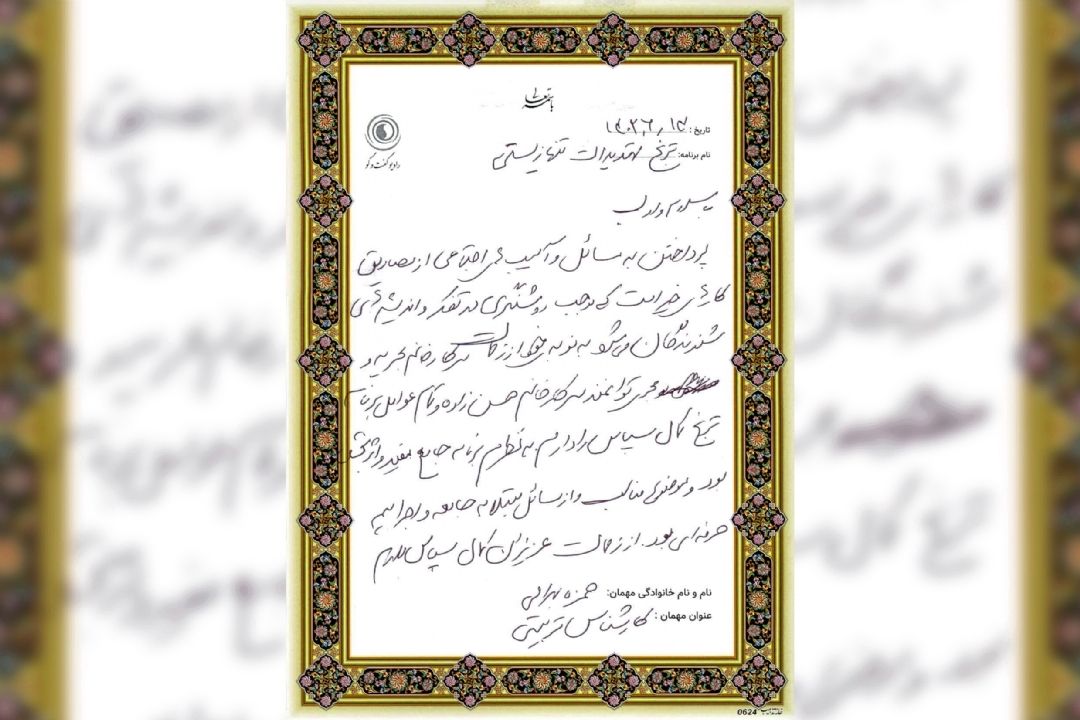 باسمه تعالی
رادیو گفت و گو
تاریخ: ۱۴۰۳/۶/۱۳
نام برنامه: ترنج تهدیدات تنهازیستی
با سلام و ادب
پرداختن به مسائل و آسیب های اجتماعی از مصادیق
کارهای خیر است که موجب روشنگری در تفکر و اندیشه های
شنوندگان می شود به نوبه خود از زحمات سرکار خانم و
مجری توانمند سرکار خانم حسن زاده و تمام عوامل برنامه
ترنج کمال سپاس را دارم به نظرم برنامه جامع مفید و اثربخش
بود و موضوع جالب و از مسائل مبتلا به جامعه و اجرا هم
حرفه ای بود. از زحمات عزیزان کمال سپاس دارم
نام و نام خانوادگی مهمان: حمزه
عنوان مهمان: کارشناس تربیتی
0624